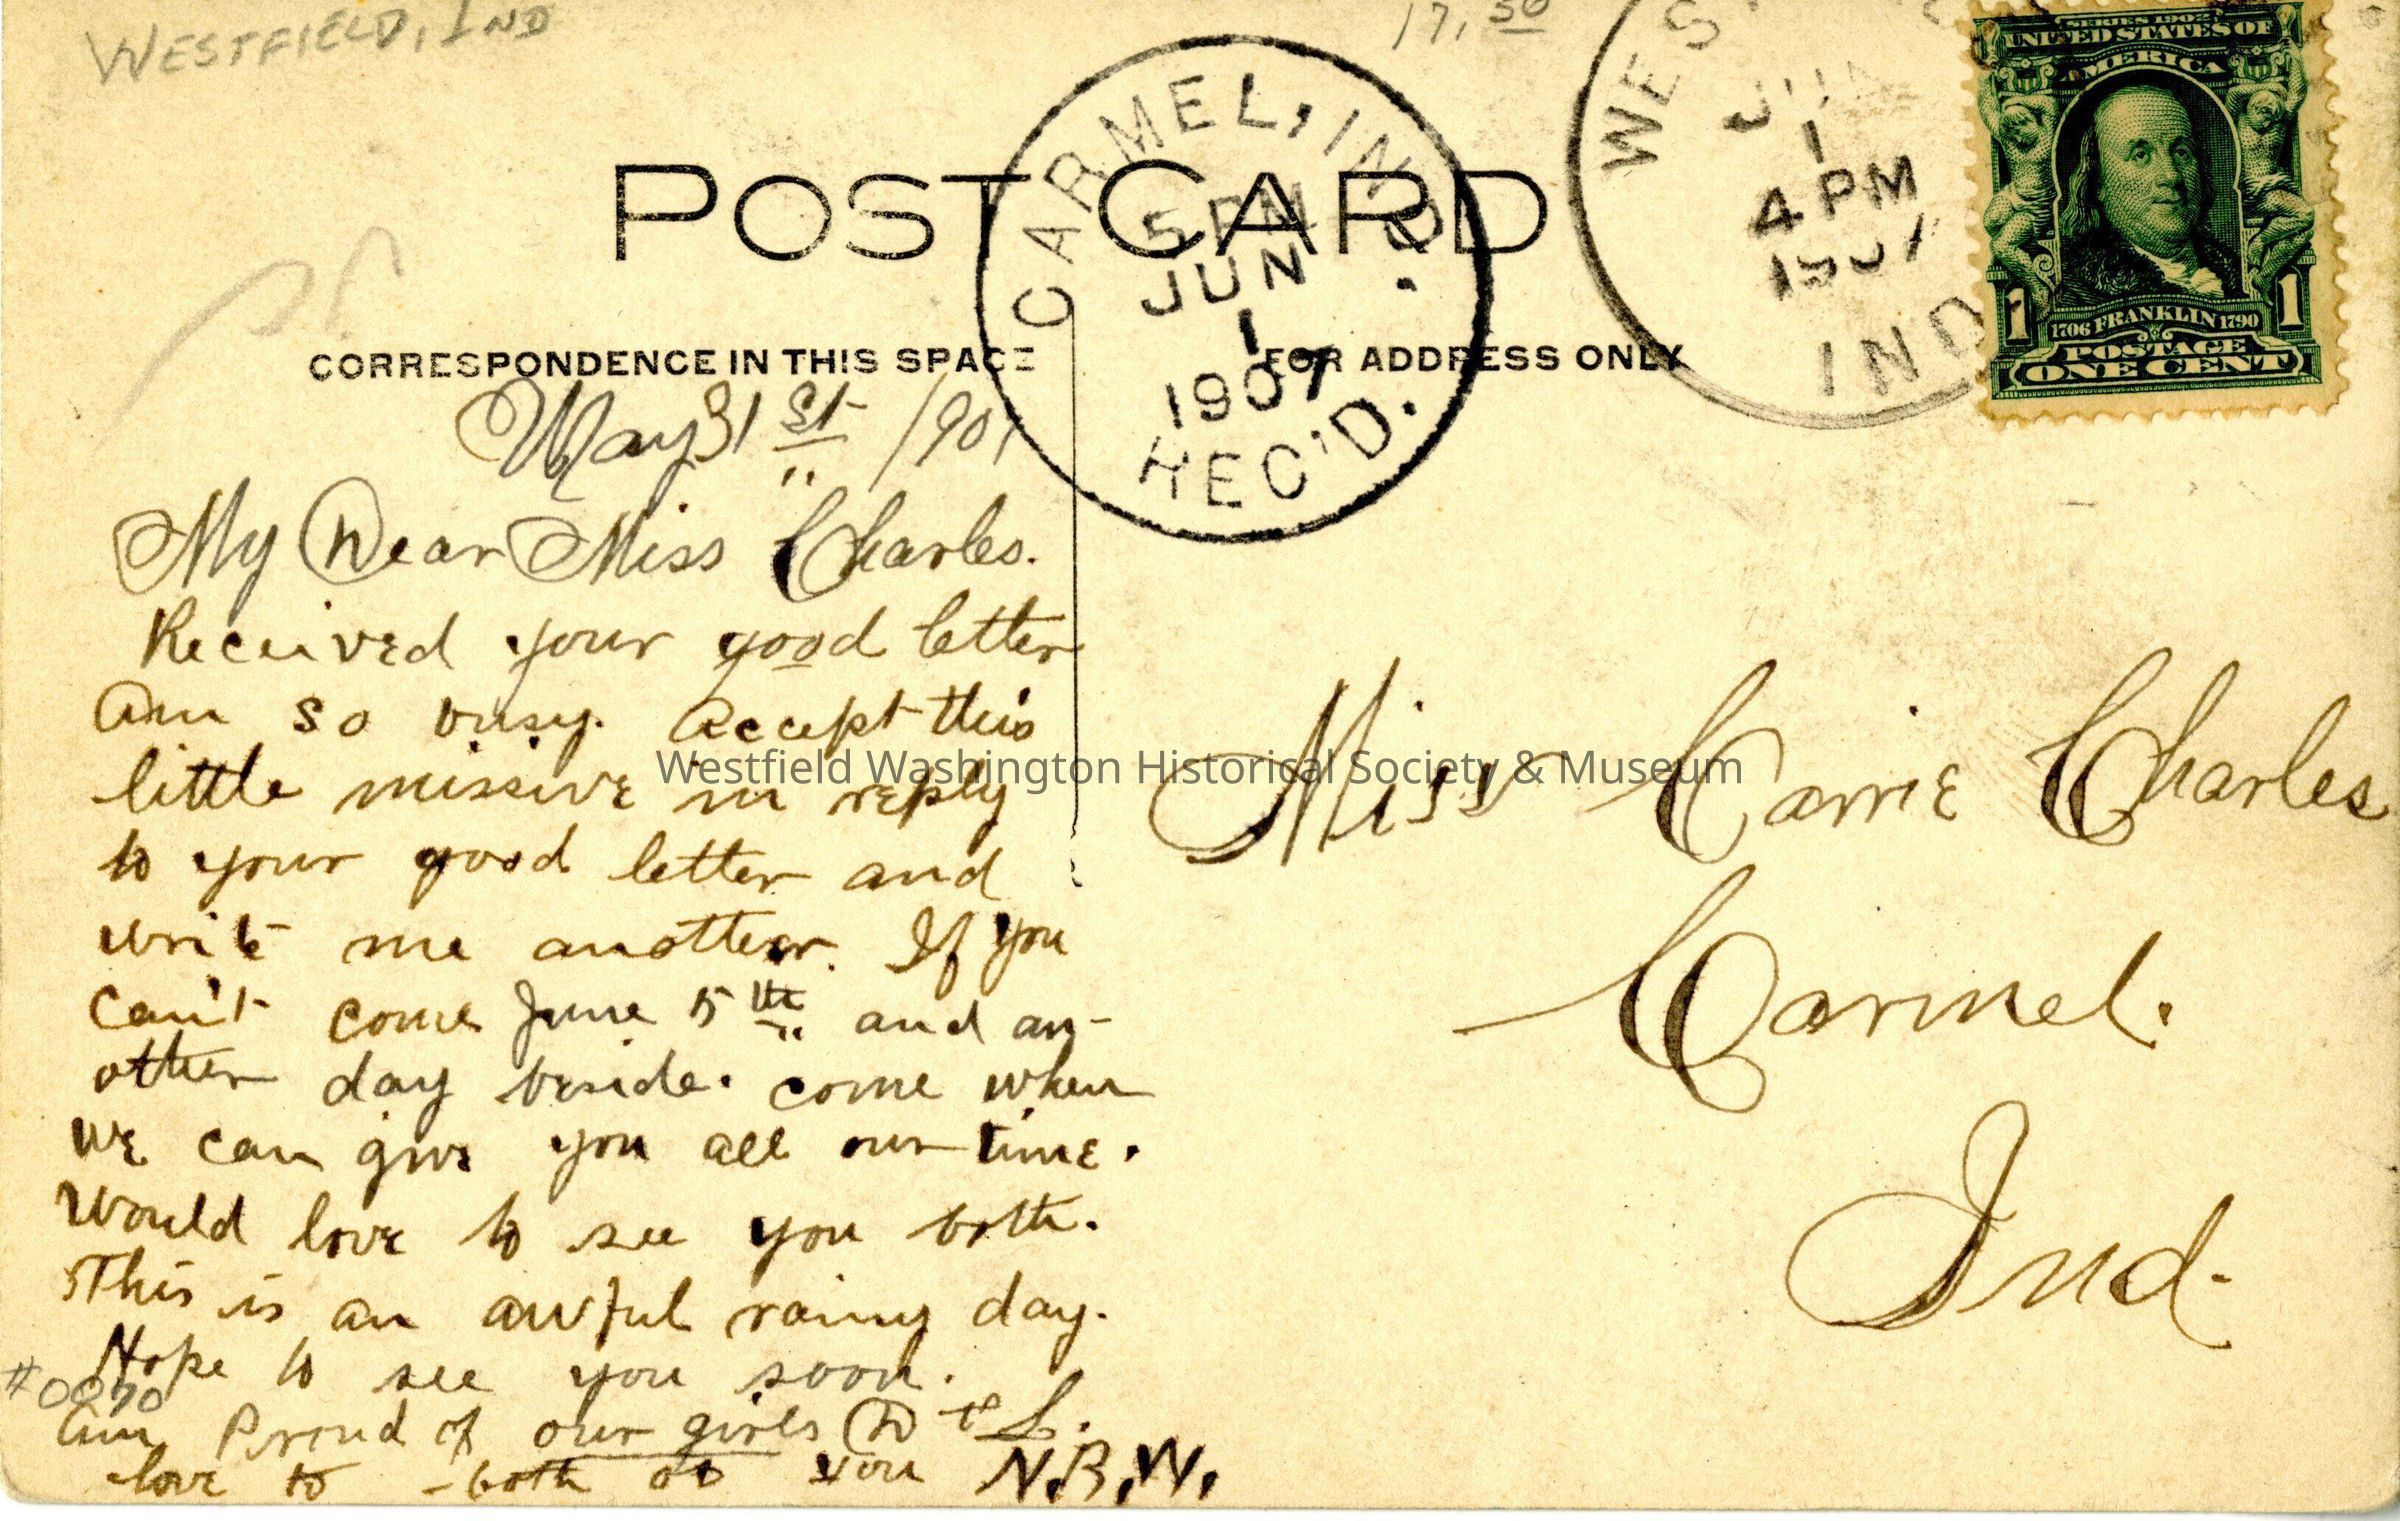 WESTFIELD, IND
17, 50
POST CARD
CARMEL, IND.
5 PM
JUN
1
1907
REC'D.
WES
JUN
1
4 PM
1907
IND
SERIES 1902
UNITED STATES OF
AMERICA
1706 FRANKLIN 1790
1 1
POSTAGE
ONE CENT
CORRESPONDENCE IN THIS SPACE
FOR ADDRESS ONLY
May 31st 1907
My Dear Miss Charles.
Received your good letter
Am so busy. Accept this
little missive in reply
to your good letter and
write me another. If you
can't come June 5th and an-
other day beside. come when
we can give you all our time.
Would love to see you both.
This is an awful rainy day.
Hope to see you soon.
#0070
Am Proud of our girls D + L.
love to - both of you N.B.W.
Miss Carrie Charles
Carmel.
Ind.
Westfield Washington Historical Society & Museum